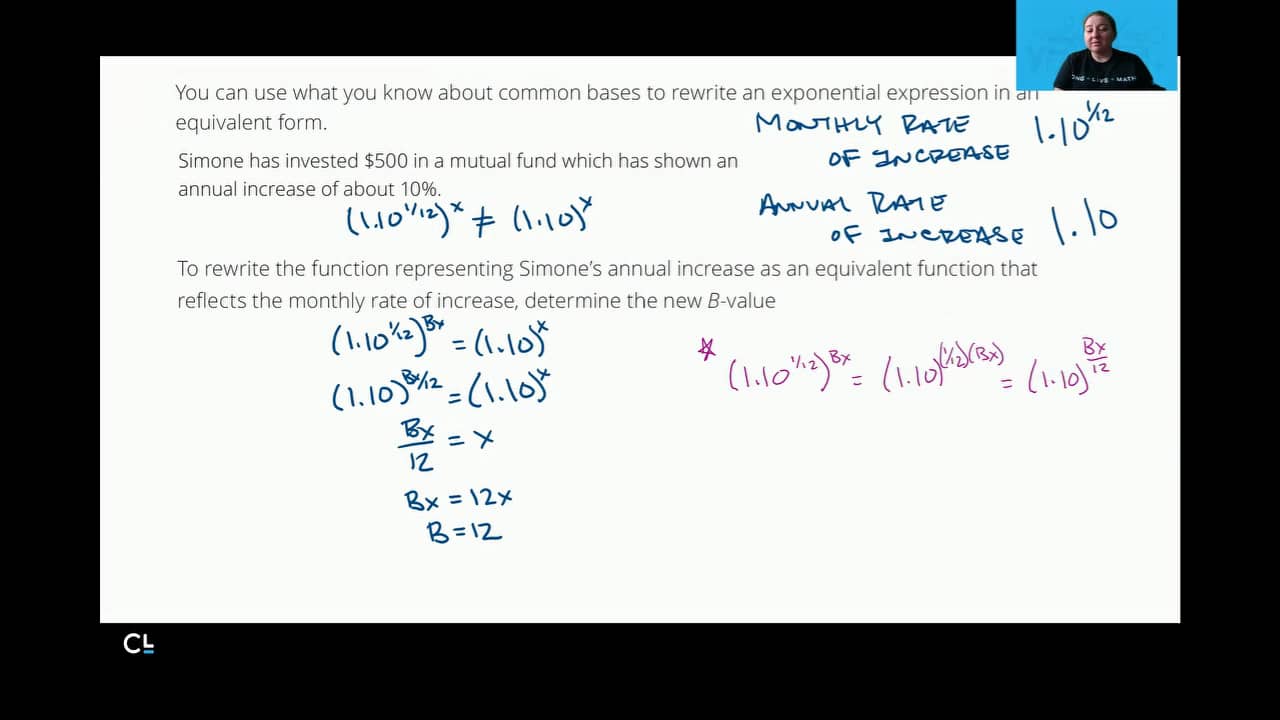 You can use what you know about common bases to rewrite an exponential expression in an
equivalent form.
MONTHLY RATE
OF INCREASE
1.10^{1/12}
Simone has invested $500 in a mutual fund which has shown an
annual increase of about 10%.
(1.10^{1/12})^x ≠ (1.10)^x
ANNUAL RATE
OF INCREASE
1.10
To rewrite the function representing Simone's annual increase as an equivalent function that
reflects the monthly rate of increase, determine the new B-value
(1.10^{1/12})^{Bx} = (1.10)^x
(1.10)^{Bx/12} = (1.10)^x
Bx/12 = x
Bx = 12x
B = 12
☆ (1.10^{1/12})^{Bx} = (1.10)^{(1/12)(Bx)} = (1.10)^{Bx/12}
LONG - LIVE - MATH
CL